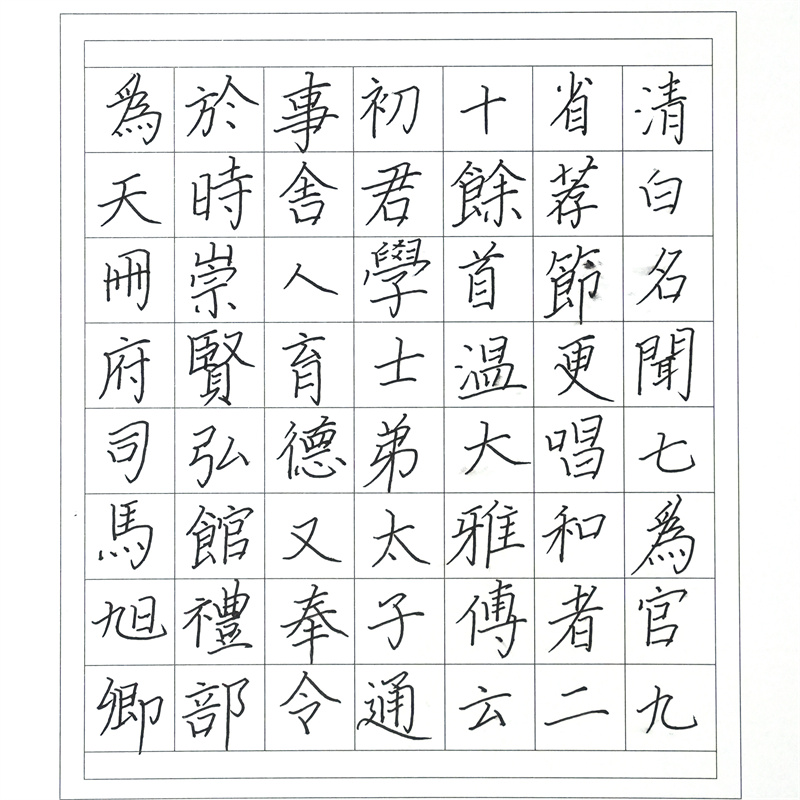 清白名聞七為官九
省荐節更唱和者二
十餘首温大雅傅云
初君學士弟太子通
事舍人育德又奉令
於時崇賢弘館禮部
為天冊府司馬旭卿